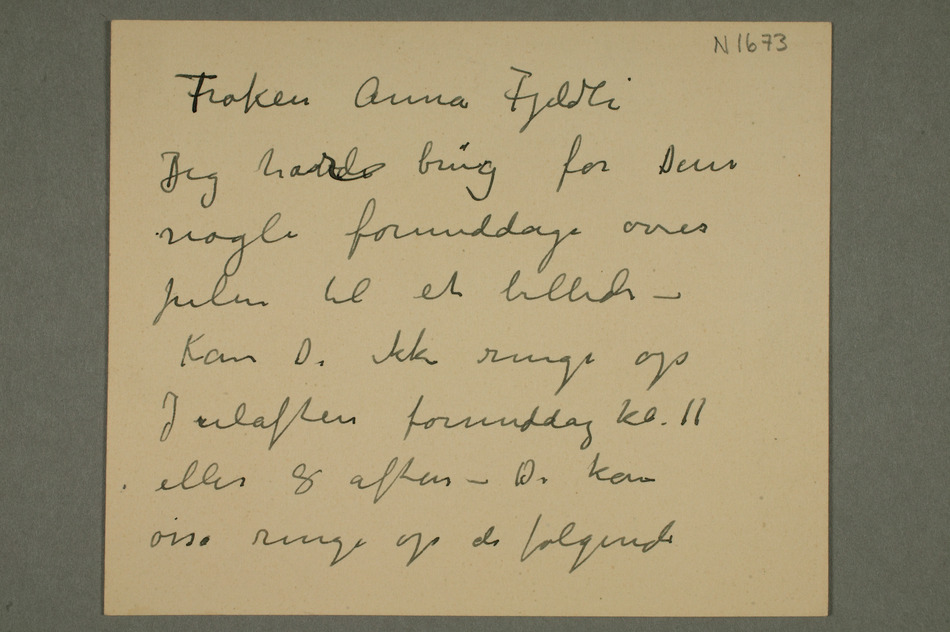 N 1673
Frøken Anna Fjeldli
Jeg havde brug for Dem
nogle formiddage over
julen til et billede –
Kan De ikke ringe op
Juleaften formiddag kl. 11
eller 8 aften – De kan
osså ringe op de følgende